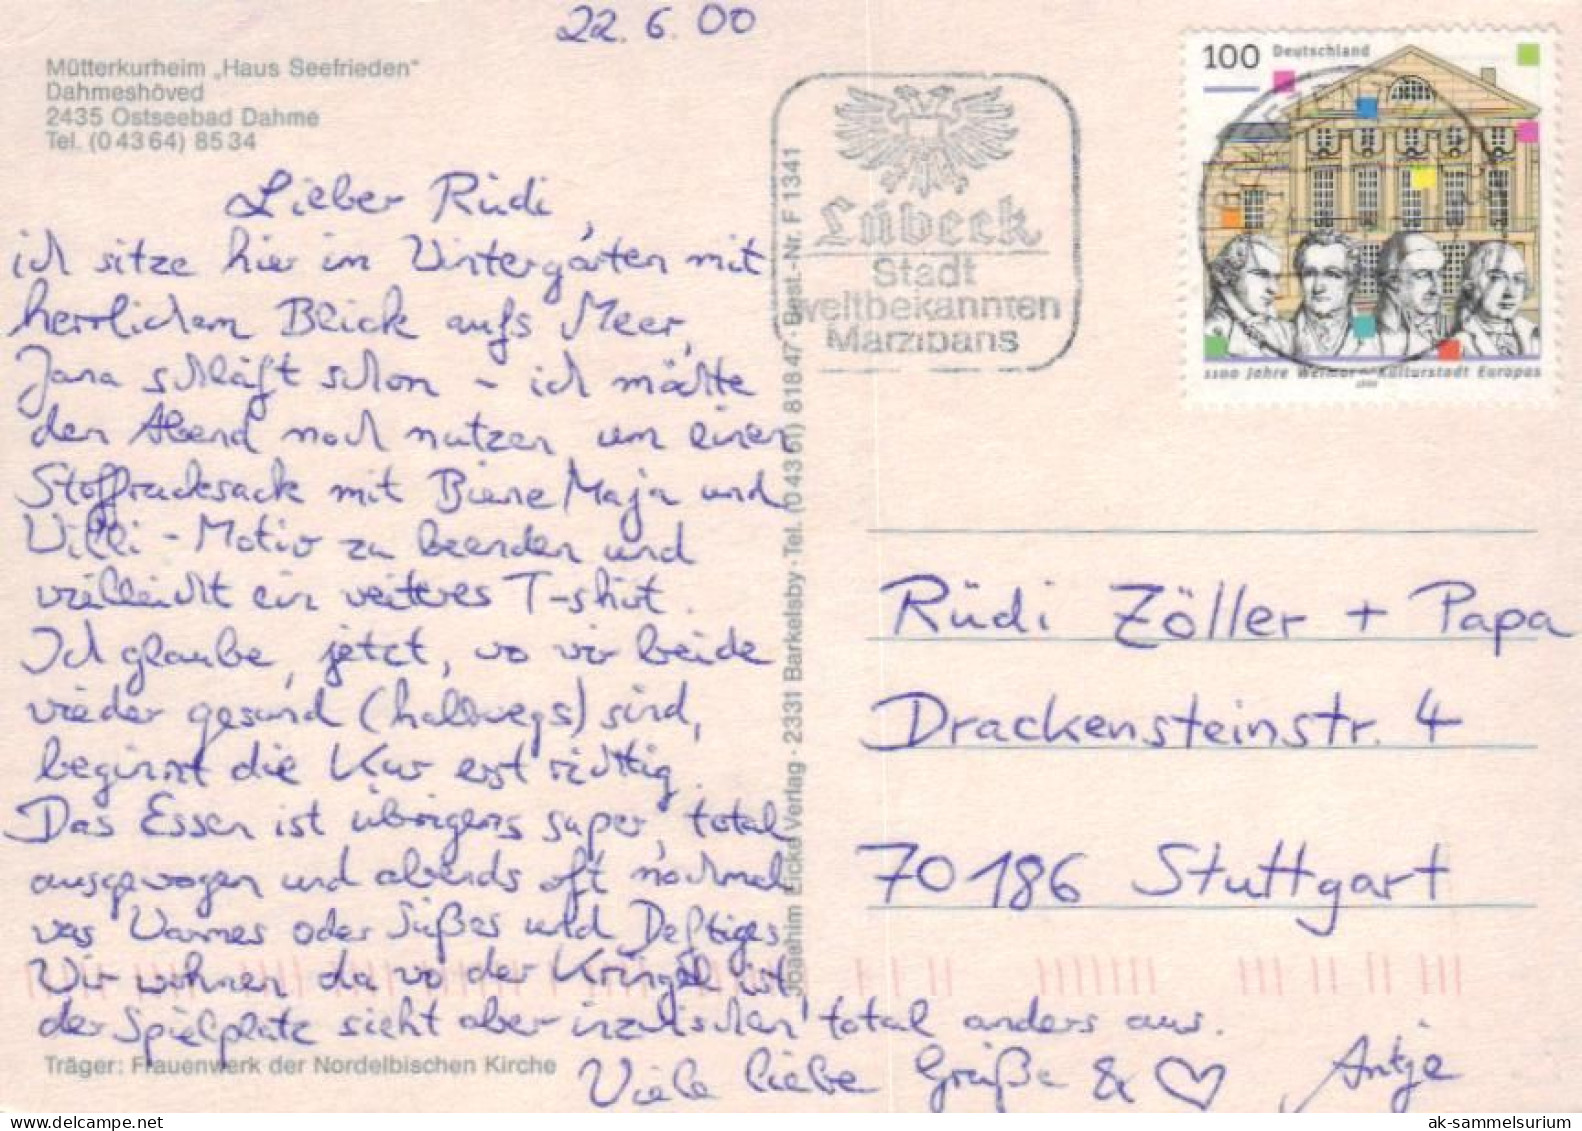 22. 6. 00
Mütterkurheim „Haus Seefrieden"
Dahmeshöved
2435 Ostseebad Dahme
Tel. (0 43 64) 85 34
Lieber Rüdi,
ich sitze hier im Wintergarten mit
herrlichem Blick aufs Meer,
Jana schläft schon - ich möchte
den Abend noch nutzen um einen
Stoffrucksack mit Biene Maja und
Willi-Motiv zu beenden und
vielleicht ein weiteres T-shirt.
Ich glaube, jetzt, wo wir beide
wieder gesund (halbwegs) sind,
beginnt die Kur erst richtig.
Das Essen ist übrigens super, total
ausgewogen und abends oft nochmal
was Warmes oder Süßes und Deftiges.
Wir wohnen da wo der Kringel ist
der Spielplatz sieht aber inzwischen total anders aus.
Viele liebe Grüße & ♡ Antje
Träger: Frauenwerk der Nordelbischen Kirche
Joachim Eicke Verlag · 2331 Barkelsby · Tel. (0 43 51) 818 47 · Best.-Nr. F 1341
Lübeck
Stadt
weltbekannten
Marzipans
100 Deutschland
1100 Jahre Weimar · Kulturstadt Europas
1999
Rüdi Zöller + Papa
Drackensteinstr. 4
70186 Stuttgart
ak-ansichtskarten.de
ak-sammelsurium / delcampe.net